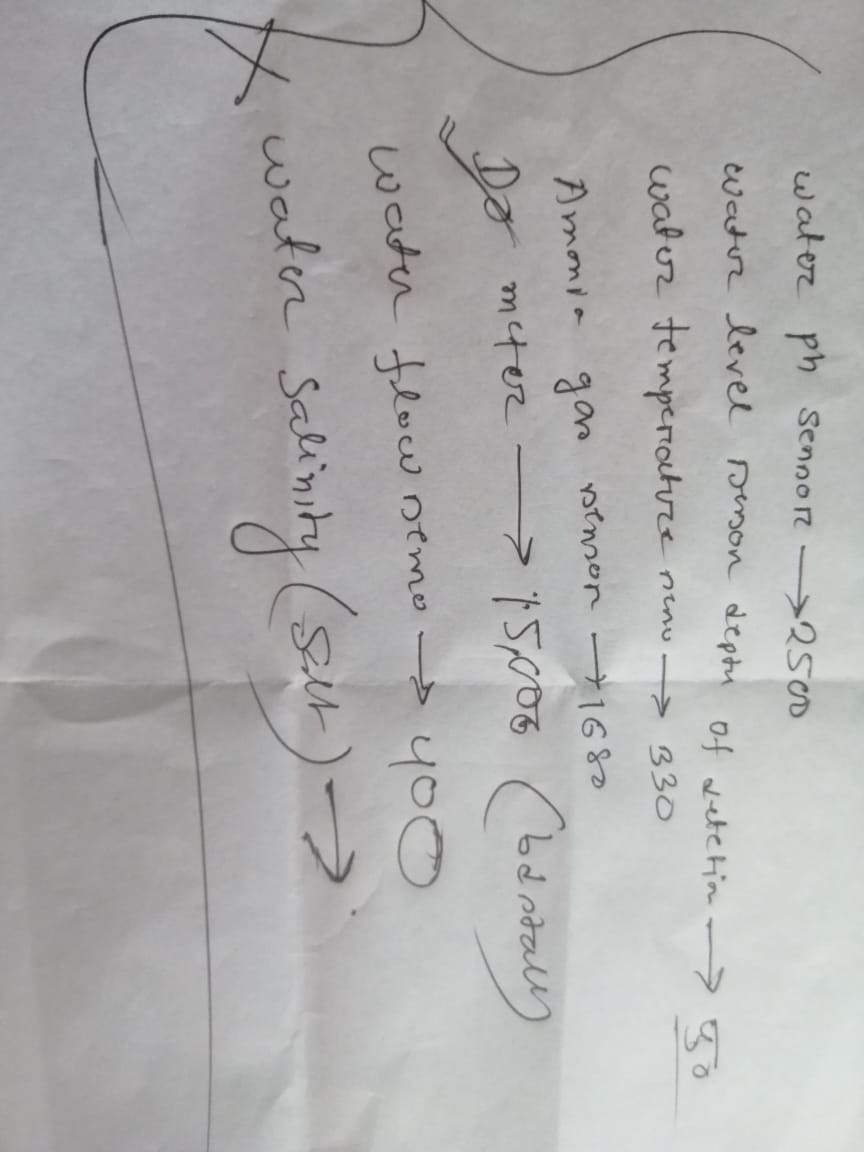 water ph sensor → 2500
water level sensor depth of detection → 90
water temperature sens → 330
Amonia gas sensor → 1680
DO meter → 15,000 (bdstall)
water flow senso → 400
X water salinity (salt) →